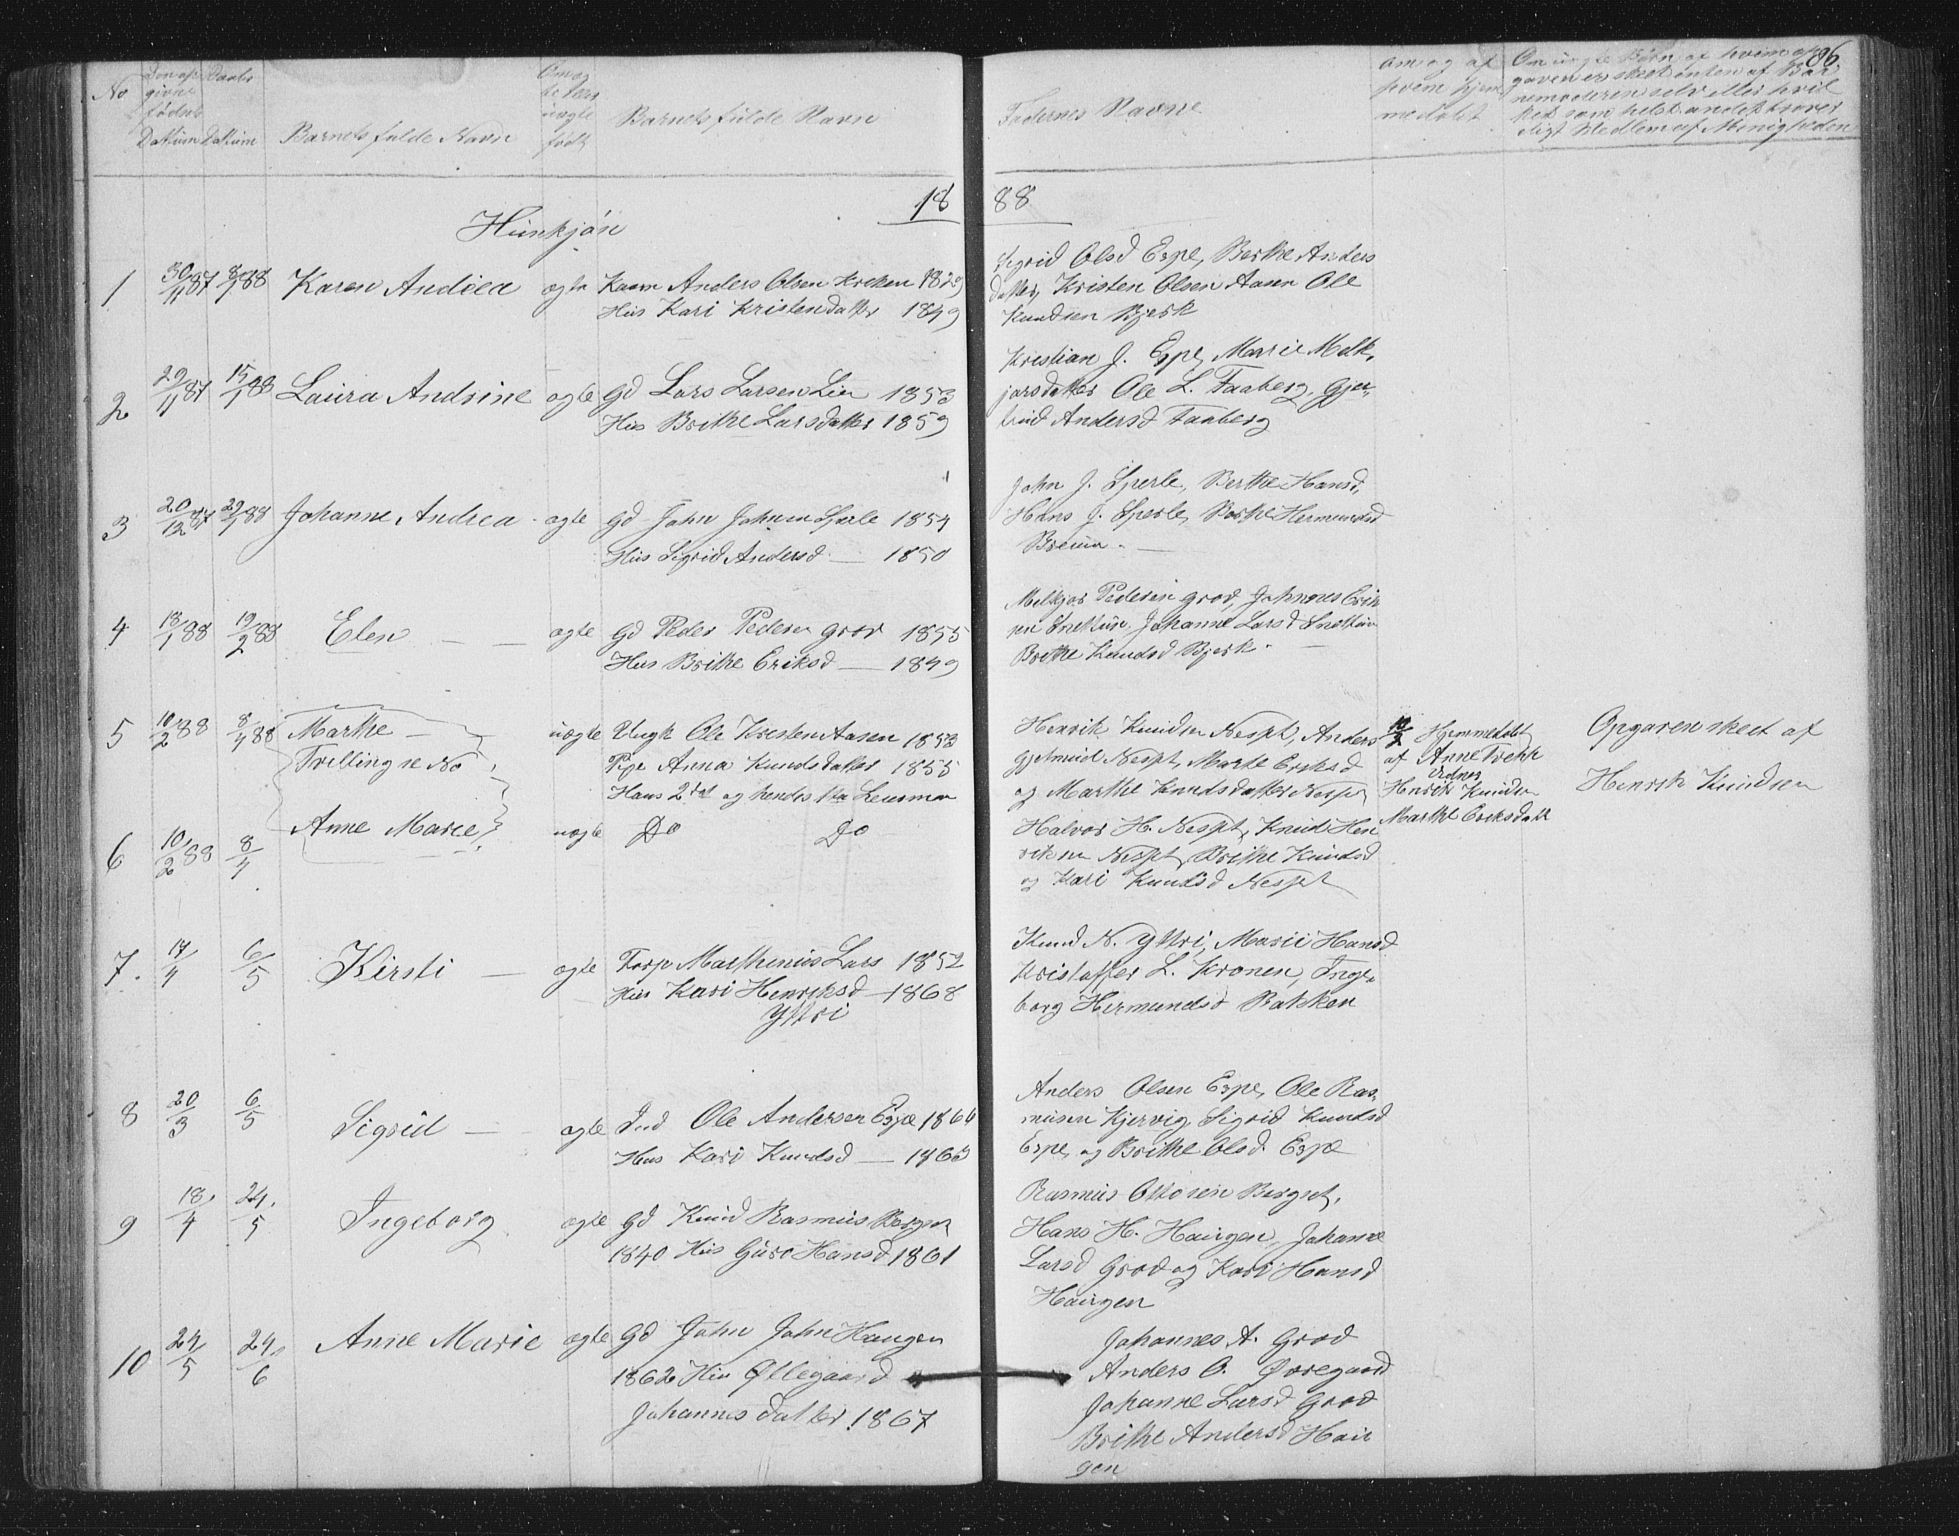 86
No
Døbte
givne
fødsels
Dattum Dattum
Barnets fulde Navn
Om æg
te eller
uægte
født
Barnets fulde Navn
Fadernes Navne
om og af
hvem hjem
medøbt
Om uægte Børn af hvem op
gaven er skeet enten af Bar
nemoderen selv eller hvil
ket som helst andet trover
digt Medlem af Menigheden
18 88
Hunkjøn
1 30/11 87 8/1 88 Karen Andrea ægte Kaarm Anders Olsen Kroken 1829
Hus Kari Kristendatter 1849
Sigrid Olsd Espe, Berthe Anders
datter, Kristen Olsen Aasen Ole
Knudsen Bjerk
2 29/11 87 15/1 88 Laura Andrine ægte Gd Lars Larsen Lien 1853
Hus Brithe Larsdatter 1859
Kristian J. Espe, Marie Melk,
jorsdatter Ole L. Faaberg, Gjer,
trud Andersd Faaberg
3 20/12 87 29/1 88 Johanne Andrea ægte Gd John Johnsen Sperle 1854
Hus Sigrid Andersd — 1850
John J. Sperle, Berthe Hansd,
Hans J. Sperle, Berthe Hermundsd
Breum. —
4 18/1 88 19/2 88 Elen — — ægte Gd Peder Pedersen Grov 1855
Hus Brithe Eriksd — 1849
Melkjor Pedersen Grov, Johannes Erik
sen Snettun, Johanne Larsd Snettun
Brithe Knudsd Bjerk. —
5 10/2 88 8/4 88 Marthe — uægte Ungk Ole Kristen Aasen 1853
Trillingse No
Pge Anna Knudsdatter 1855
Hans 2det og hendes 1ste Leiermaal
Henrik Knudsen Nespt, Anders
Gjetmund Nespt, Marte Eriksd
og Marthe Knudsdatter Nespt
10/2 Hjemmedøbt
af Anne Trehk
Henrik Knudsen
Marthe Eriksdatt
Opgaven skeet af
Henrik Knudsen
6 10/2 88 8/4 Anne Marie uægte Do Do
Halvor H. Nespt, Knud Hen
riksen Nespt, Brithe Knudsd
og Kari Knudsd Nespt
7. 17/4 6/5 Kirsti — ægte Forp Marthinus Lars 1852
Hus Kari Henriksd — 1868
Yttri
Knud N. Yttri, Marie Hansd
Kristoffer L. Kronen, Inge,
borg Hermundsd Bakken
8 20/3 6/5 Sigrid — ægte Ind Ole Andersen Espe 1866
Hus Kari Knudsd — 1865
Anders Olsen Espe, Ole Ras,
musen Kjervig, Sigrid Knudsd
Espe, og Brithe Olsd Espe
9 18/4 24/5 Ingeborg ægte Gd Knud Rasmus Bergset
1840 Hus Guro Hansd 1861
Rasmus Ottosen Bergset,
Hans H. Haugen, Johanne
Larsd Grov og Kari Hansd
Haugen
10 24/5 24/6 Anne Marie ægte Gd John John Haugen
1862 Hus Øllegaard
Johannesdatter 1867
Johannes A. Grov
Anders O. Øvregaard
Johanne Larsd Grov
Brithe Andersd Hau
gen